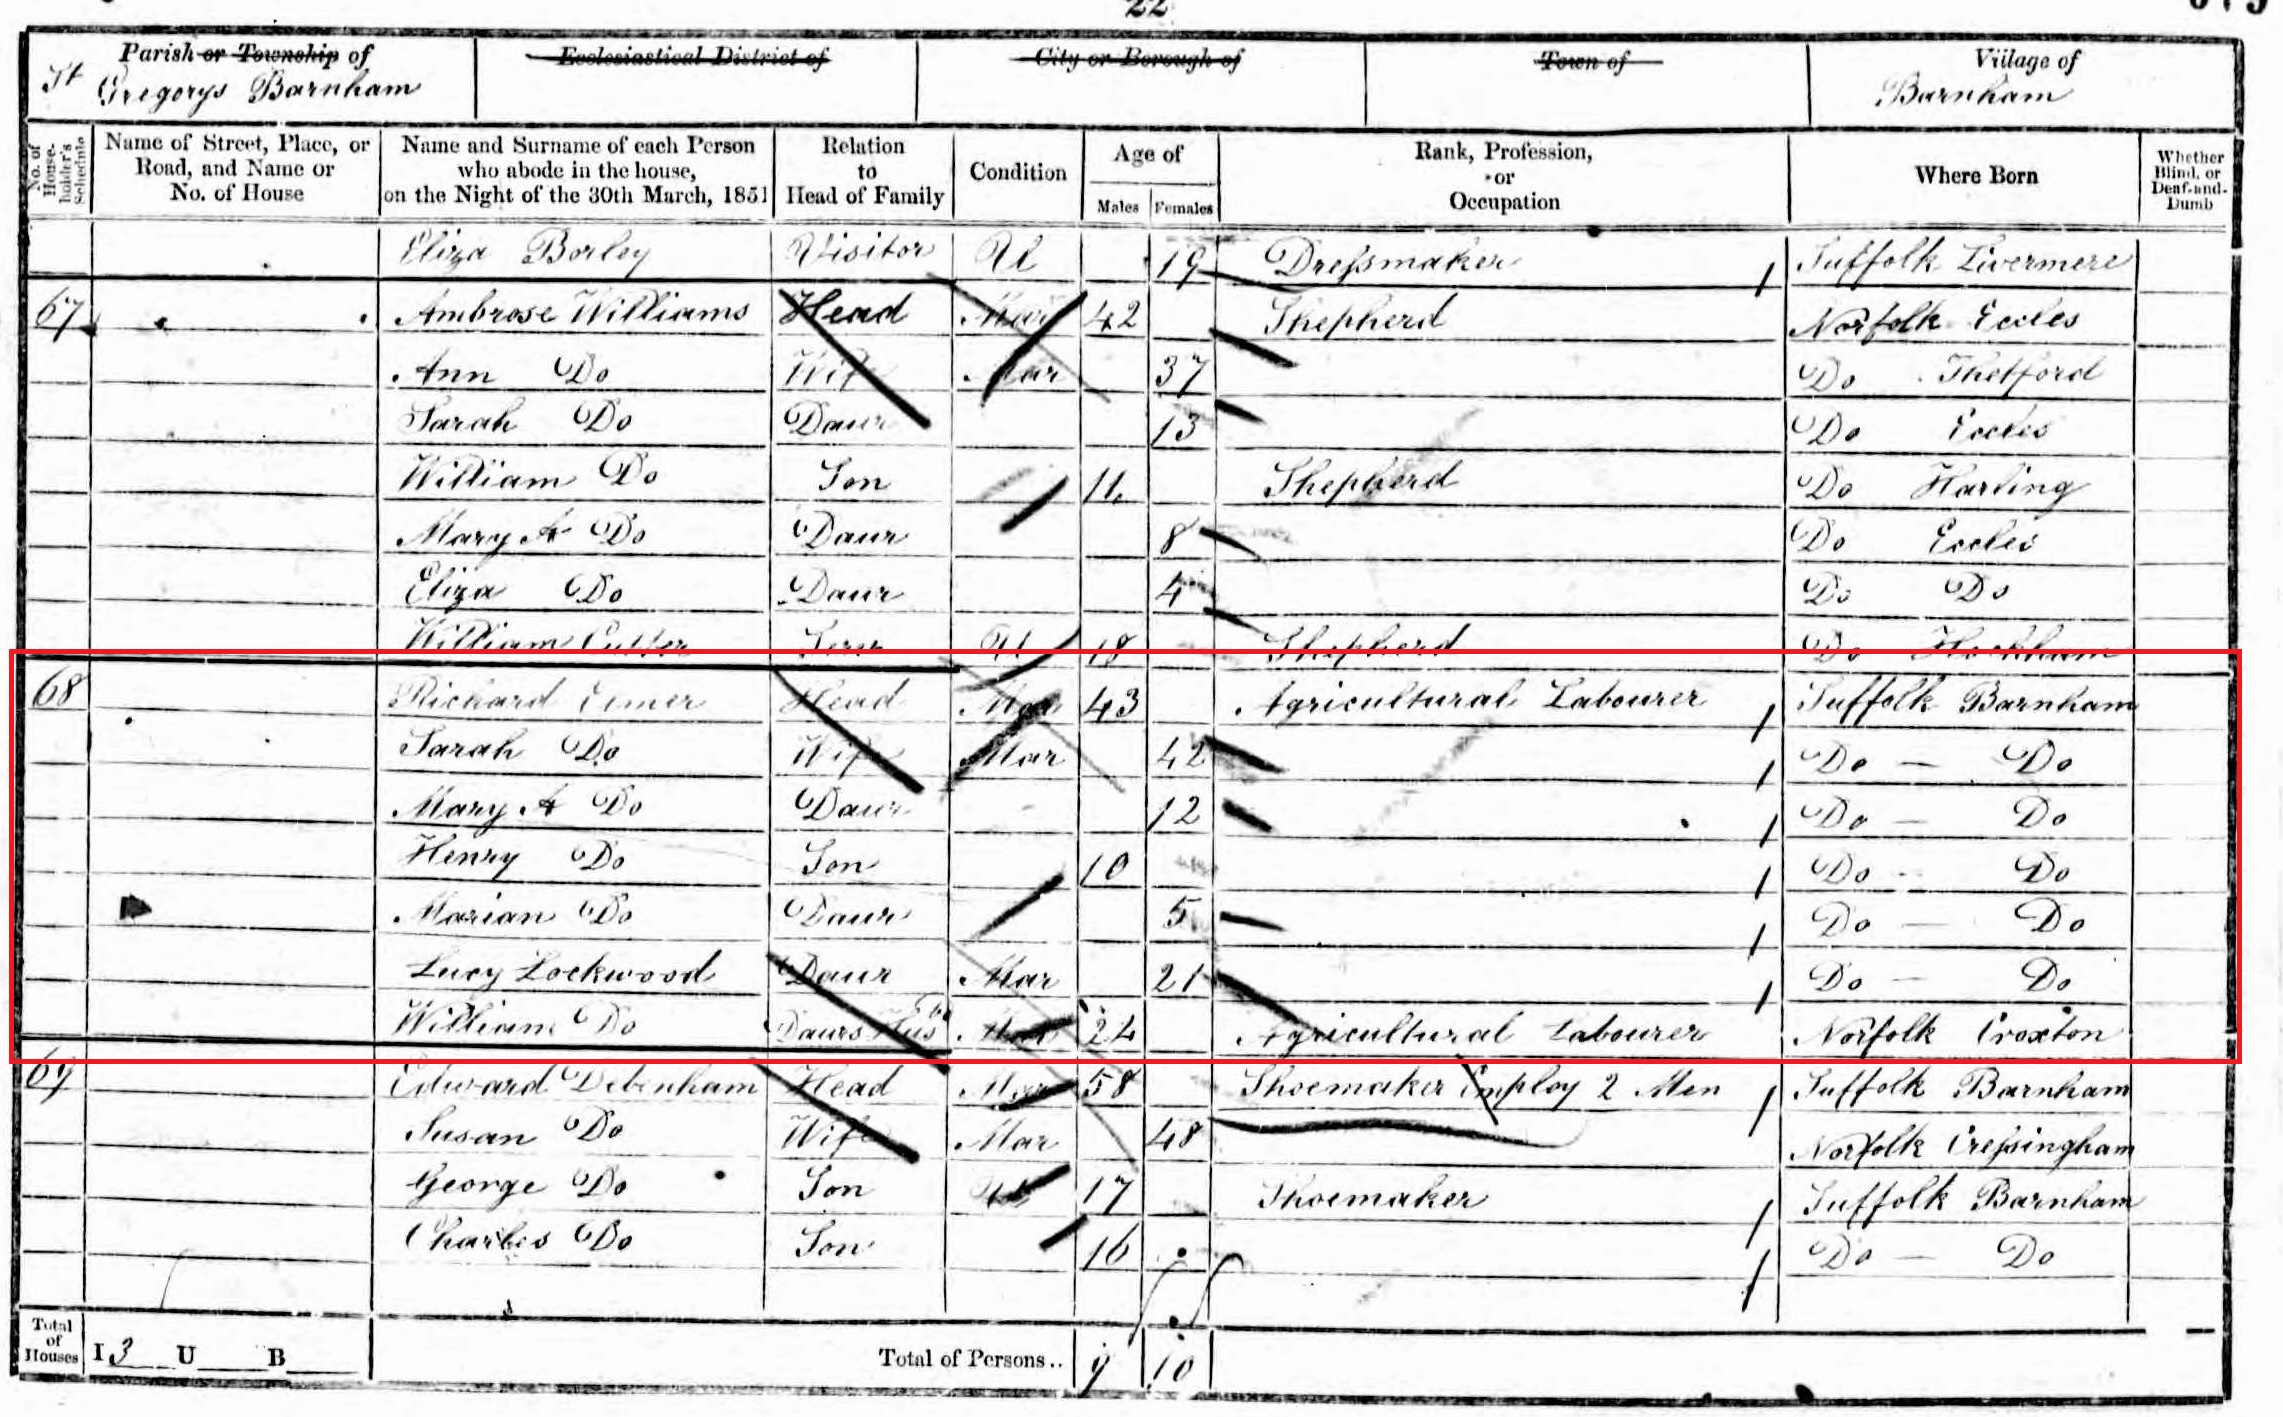 22
Parish or Township of Ecclesiastical District of City or Borough of Town of Village of
St Gregorys Barnham Barnham
No. of House-holder's Schedule Name of Street, Place, or Road, and Name or No. of House Name and Surname of each Person who abode in the house, on the Night of the 30th March, 1851 Relation to Head of Family Condition Age of Males Females Rank, Profession, or Occupation Where Born Whether Blind, or Deaf-and-Dumb
Eliza Borley Visitor U 19 Dressmaker Suffolk Livermere
67 Ambrose Williams Head Mar 42 Shepherd Norfolk Eccles
Ann Do Wife Mar 37 Do Thetford
Sarah Do Daur 13 Do Eccles
William Do Son 11 Shepherd Do Harling
Mary A Do Daur 8 Do Eccles
Eliza Do Daur 4 Do Do
William Cutter Serv U 18 Shepherd Do Hockham
68 Richard Elmer Head Mar 43 Agricultural Labourer Suffolk Barnham
Sarah Do Wife Mar 42 Do — Do
Mary A Do Daur 12 Do — Do
Henry Do Son 10 Do - Do
Marian Do Daur 5 Do — Do
Lucy Lockwood Daur Mar 21 Do - Do
William Do Daurs Husb Mar 24 Agricultural Labourer Norfolk Croxton
69 Edward Debenham Head Mar 58 Shoemaker Employ 2 Men Suffolk Barnham
Susan Do Wife Mar 48 Norfolk Cressingham
George Do Son U 17 Shoemaker Suffolk Barnham
Charles Do Son 16 Do — Do
Total of Houses I 3 U B Total of Persons.. 9 10